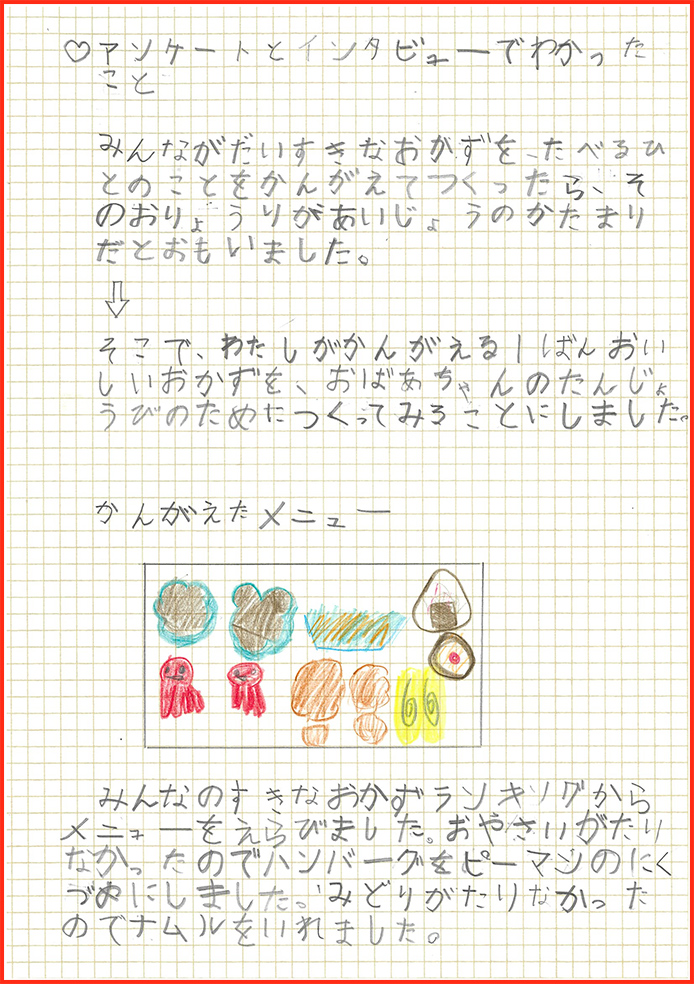 ♡アンケートとインタビューでわかった
こと
みんながだいすきなおかずを、たべるひ
とのことをかんがえてつくったら、そ
のおりょうりがあいじょうのかたまり
だとおもいました。
⇩
そこで、わたしがかんがえる1ばんおい
しいおかずを、おばあちゃんのたんじょ
うびのためにつくってみることにしました。
かんがえたメニュー
みんなのすきなおかずランキングから
メニューをえらびました。おやさいがたり
なかったのでハンバーグをピーマンのにく
づめにしました。みどりがたりなかった
のでナムルをいれました。